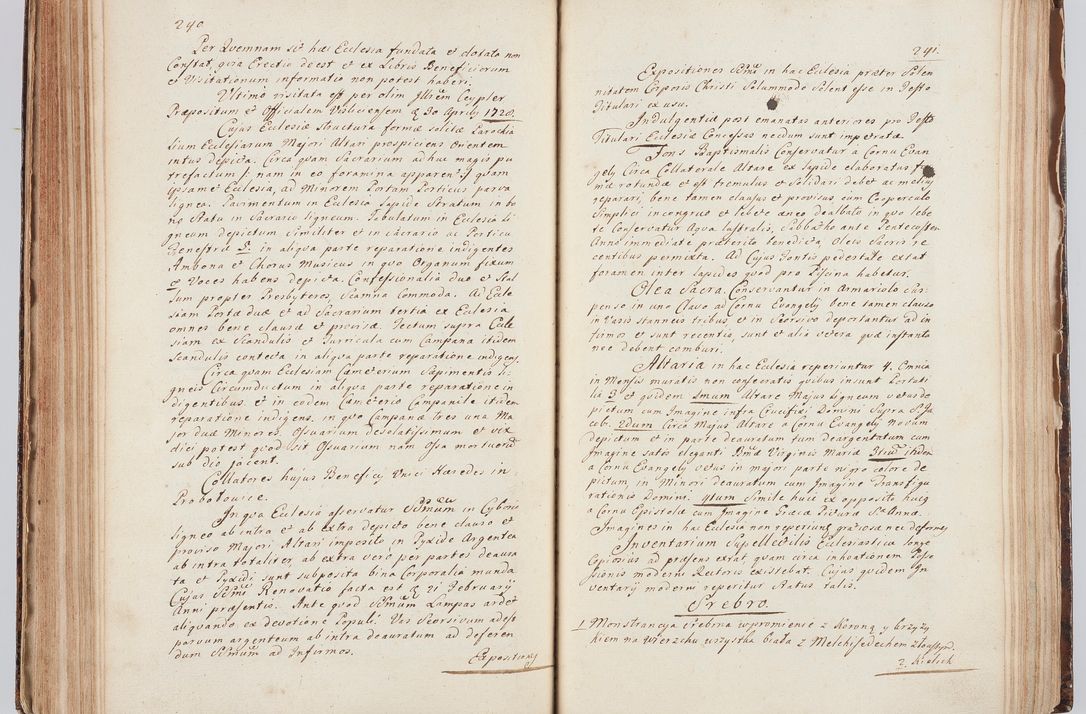 240
Per Quemnam sit haec Ecclesia fundata et dotata non
Constat, quia Erectio deest et ex Libris Beneficiorum
et Visitationum informatio non potest haberi.
Ultimo visitata est per olim Illrem Ceypler
Praepositum et Officialem Visliciensem d 30 Aprilis 1728.
Cujus Ecclesiae structura formae solitae Parochia
lium Ecclesiarum Majori Altari prospiciens Orientem
intus depicta. Circa quam Sacrarium adhuc magis pu
trefactum, nam in eo foramina apparent quam
ipsamet Ecclesia, ad Minorem Portam Porticus parva
lignea. Pavimentum in Ecclesia lapide Stratum in bo
no Statu in Sacrario ligneum. Tabulatum in Ecclesia li
gneum depictum similiter et in Sacrario ac Porticu
Fenestrae 5. in aliqua parte reparatione indigentes
Ambona et Chorus Musicus in quo Organum fixum
6 Voces habens depicta. Confessionalia duo et Stal
lum propter Presbyteros, Scamna Commoda. Ad Eccle
siam Portae duae et ad Sacrarium tertia ex Ecclesia
omnes bene clausae et provisae. Tectum supra Eccle
siam ex Scandulis et Turricula cum Campana itidem
Scandulis contecta in aliqua parte reparatione indigens.
Circa quam Ecclesiam Caemeterium Sapimentis li-
gneis Circumductum in aliqua parte reparatione in
digentibus. et in eodem Caemeterio Campanile itidem
reparatione indigens. in quo Campanae tres una Ma
jor duae Minores. Ossuarium desolatissimum et vix
dici potest quod sit Ossuarium nam Ossa mortuorum
sub dio jacent.
Collatores hujus Beneficij Unici Haeredes in
Probołowice.
In qua Ecclesia asservatur SSmum in Cyborio
ligneo ab intro et ab extra depicto bene clauso et
proviso Majori Altari imposito in Pyxide Argentea
ab intra totaliter, ab extra vero per partes deaura
ta et Pyxidi sunt subposita bina Corporalia munda
Cujus SSmi Renovatio facta est d 21 Februarij
Anni praesentis. Ante quod SSmum Lampas ardet
aliquando ex devotione Populi. Vas Seorsivum adest
parvum argenteum ab intra deauratum ad deferen
dum SSmum ad Infirmos.
Expositiones
241.
Expositiones SSmi in hac Ecclesia praeter Solen
nitatem Corporis Christi Solummodo Solent esse in Festo
Titulari ex usu.
Indulgentiae post emanatas anteriores pro Festo
Titulari Ecclesiae Concessas necdum sunt impetratae.
Fons Baptismalis Conservatur a Cornu Evan
gely Circa Collaterale Altare ex lapide elaboratus for
mae rotundae et est tremulus et Solidari debet ac melius
reparari, bene tamen clausus et provisus cum Cooperculo
Simplici incongruo et lebete aeneo dealbato in quo lebe
te Conservatur Aqua lustralis, Sabbatho ante Pentecosten
Anno immediate praeterito benedicta, Oleis Sacris re
centibus permixta. Ad Cujus Fontis pedestale extat
foramen inter lapides quod pro Piscina habetur.
Olea Sacra. Conservantur in Armariolo Sus-
penso in uno Clavo ad Cornu Evangely bene tamen clauso
in Vasis stanneis tribus et in Seorsivo deportantur ad in
firmos et sunt recentia, sunt et alia vetera quae instanto
nee debent comburi.
Altaria in hac Ecclesia reperiuntur 4. Omnia
in Mensis muratis non consecratis quibus insunt Portati
lia 3 et quidem 1mum Altare Majus ligneum vetus de
pictum cum Imagine infra Crucifixi Domini Supra S. Ja
cob. 2dum Circa Majus Altare a Cornu Evangely novum
depictum et in parte deauratum tum deargentatum cum
Imagine satis eleganti Bmae Virginis Mariae 3tium itidem
a Cornu Evangely vetus in majori parte nigro colore de
pictum, in Minori deauratum cum Imagine Transfigu
rationis Domini. 4tum Simile huic ex opposito hucq
a Cornu Epistolae cum Imagine Graecae Picturae S. Annae.
Imagines in hac Ecclesia non reperiuntur gratiosae nec deformes
Inventarium Suppellectilis Ecclesiastica longe
Copiosius ad praesens extat, quam circa inchoationem Posse
ssionis moderni Rectoris existebat. Cujus quidem In
ventarij moderni reperitur Status talis.
Srebro.
1 Monstrancya srebrna w promienie z Koroną y krzyży
kiem na wierzchu wszystka biała z Melchisedechem
2. Kielich